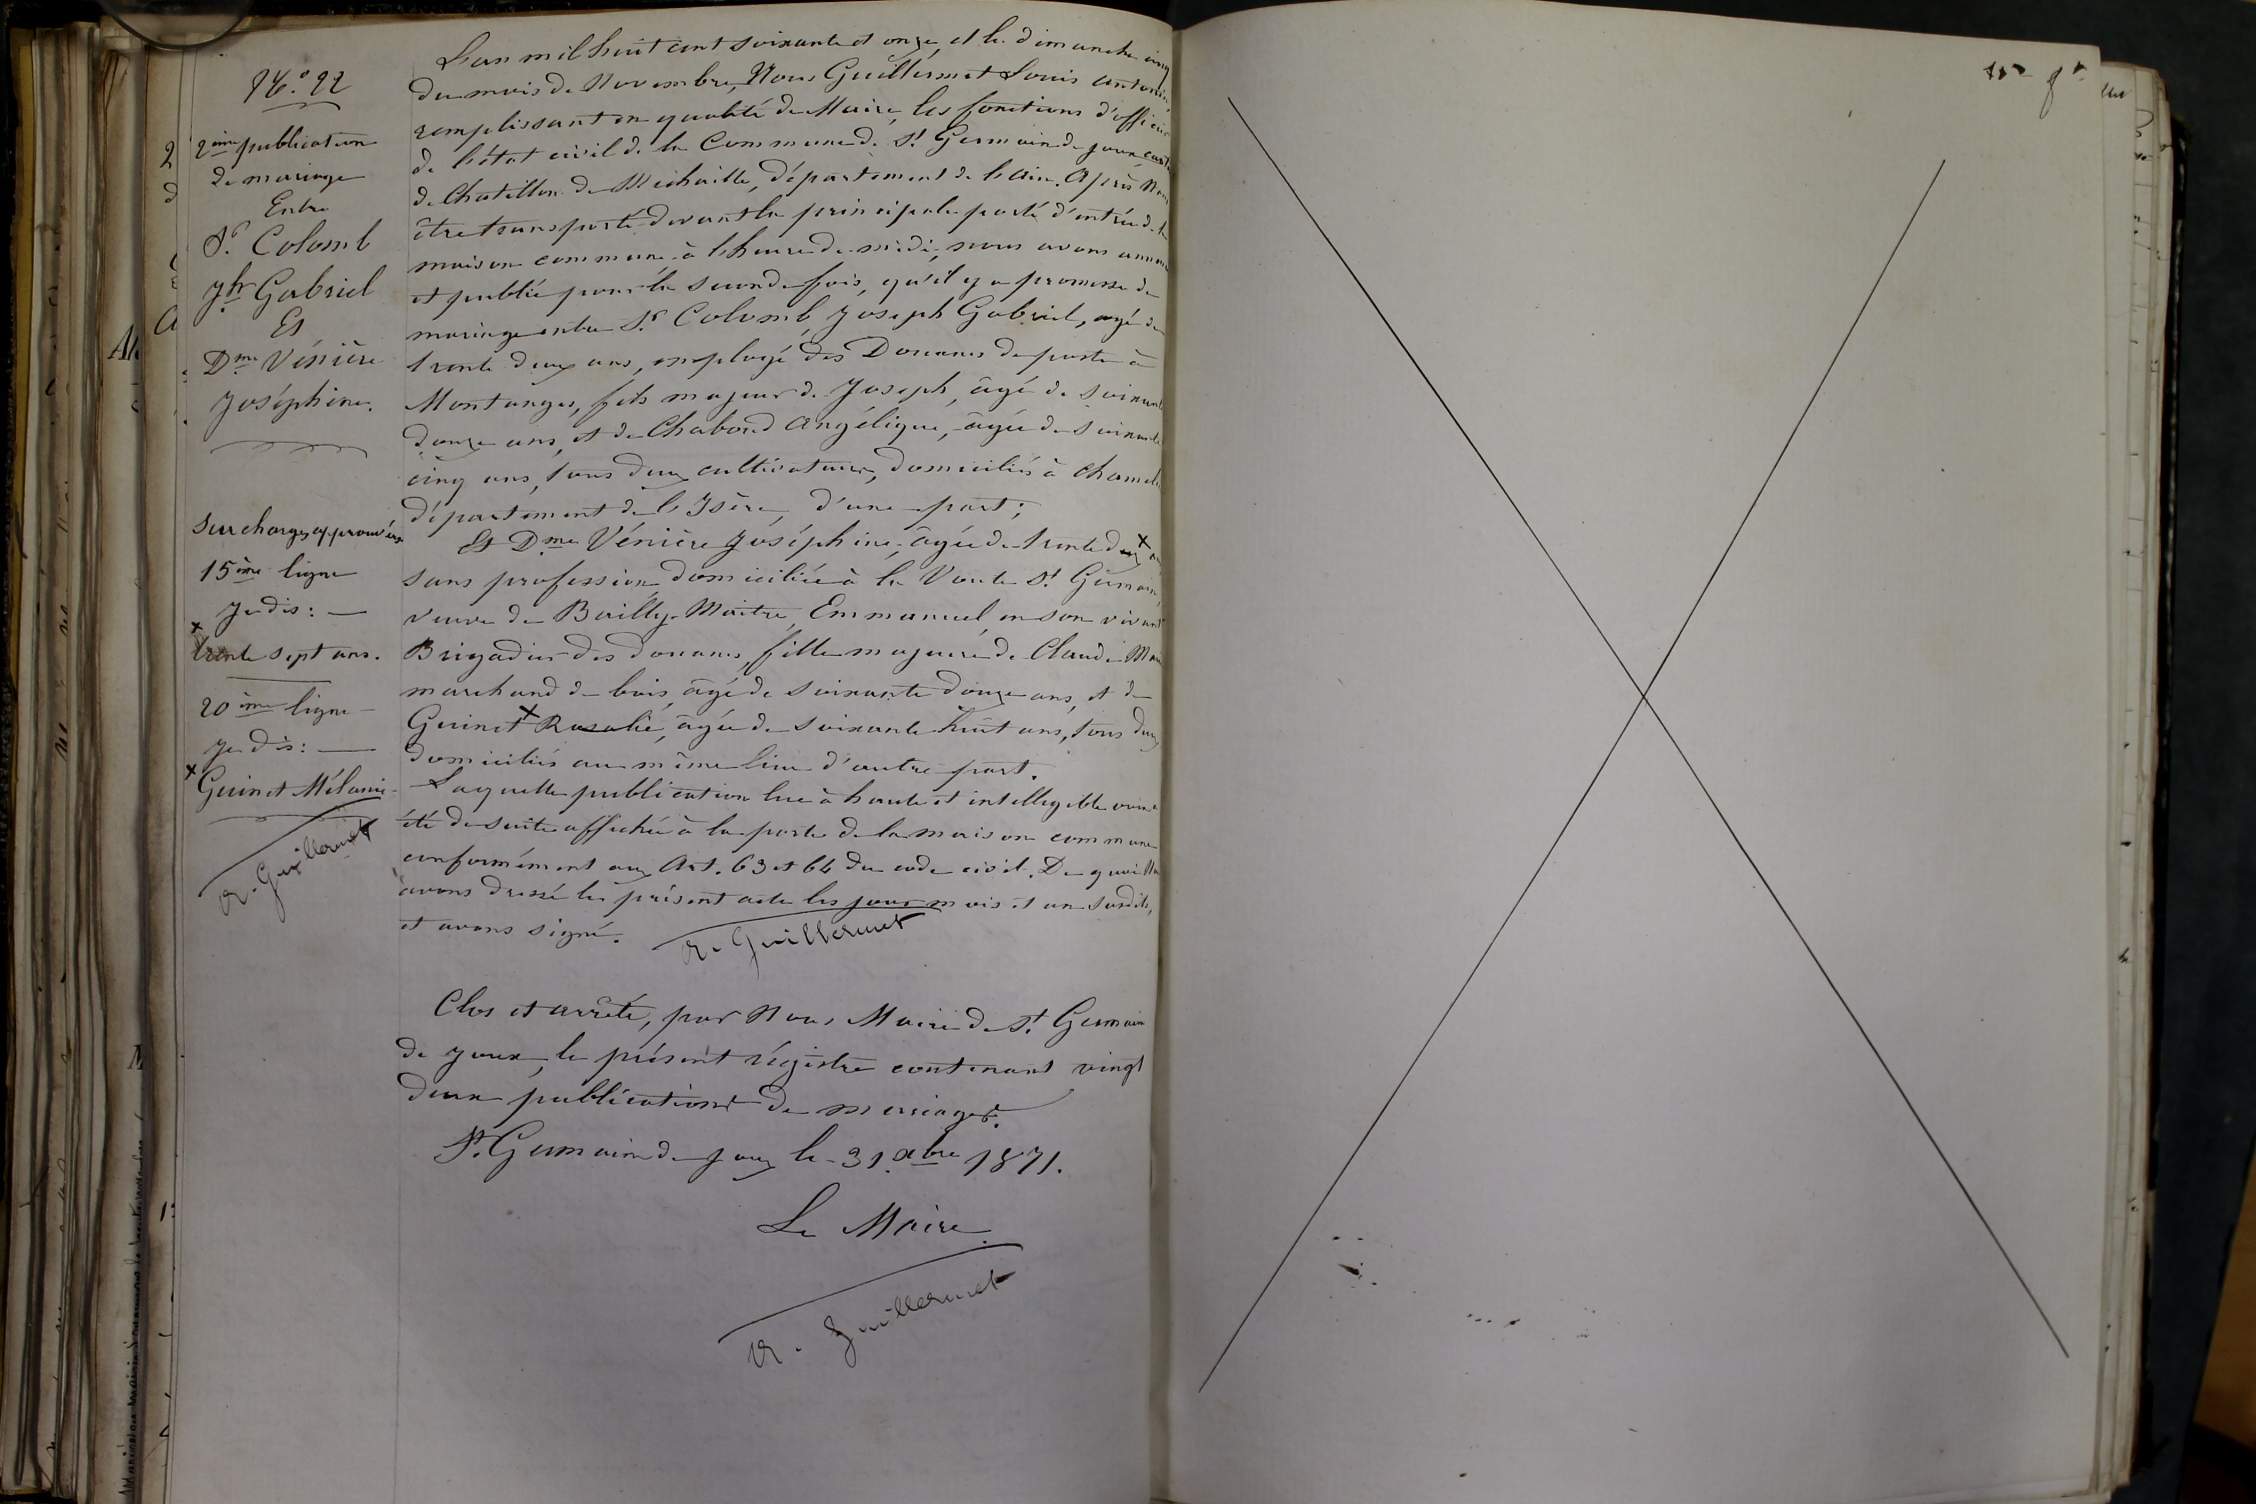 N.º 22
2ème publication
de mariage
Entre
Sr Colomb
Jh Gabriel
Et
Dme Vénière
Joséphine.
Surcharges approuvées
15ème ligne
Je dis : —
x trente sept ans.
20ème ligne —
Je dis : —
x Guinet Mélanie —
A. Guillermet
L'an mil huit cent soixante et onze, et le dimanche cinq
du mois de Novembre, Nous Guillermet Louis Antonin,
remplissant en qualité de Maire, les fonctions d'officier
de l'état civil de la Commune de St Germain de Joux, canton
de Chatillon de Michaille, département de l'ain. Après Nous
être transporté devant la principale porte d'entrée de la
maison commune à l'heure de midi, nous avons annoncé
et publié pour la seconde fois, qu'il y a promesse de
mariage entre Sr Colomb Joseph Gabriel, agé de
trente deux ans, employé des Douanes de poste à
Montanges, fils majeur de Joseph, âgé de soixante
douze ans, et de Chaboud Angélique, âgée de soixante
cinq ans, tous deux cultivateurs, domiciliés à
département de l'Isère, d'une part ;
Et Dme Vénière Joséphine, âgée de trente deux x ans
sans profession, domiciliée à la Voute St Germain,
veuve de Bailly-Maitre, Emmanuel, en son vivant
Brigadier des douanes, fille majeure de Claude
marchand de bois, âgé de soixante douze ans, et de
Guinet x Rosalie, âgée de soixante huit ans, tous deux
domiciliés au même lieu d'autre part.
Laquelle publication lue à haute et intelligible voix a
été de suite affichée à la porte de la maison commune
conformément aux Art. 63 et 64 du code civil. De quoi Nous
avons dressé le présent acte les jour mois et an susdits,
et avons signé.
A. Guillermet
Clos et arrêté, par Nous Maire de St Germain
de Joux, le présent régistre contenant vingt
deux publications de mariages.
St Germain de Joux le 31 Xbre 1871.
Le Maire
A. Guillermet